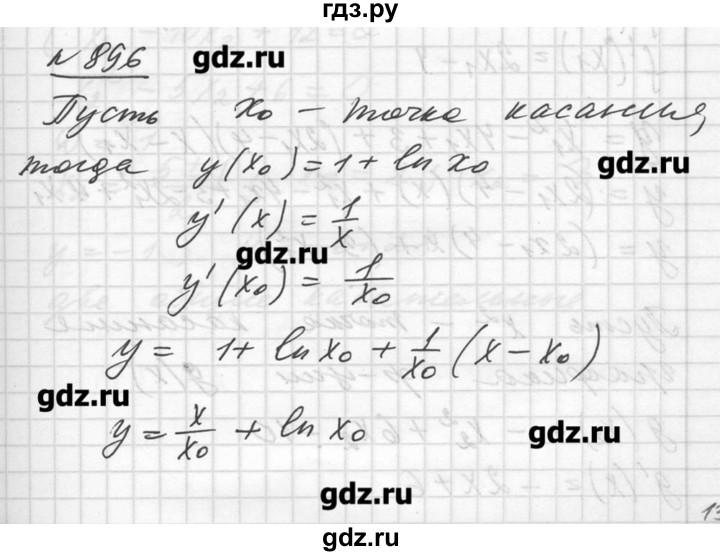 гдз.ру
№ 896 gdz.ru
Пусть x₀ – точка касания,
тогда y(x₀) = 1 + ln x₀ gdz.ru
y'(x) = 1/x
gdz.ru
y'(x₀) = 1/x₀
y = 1 + ln x₀ + 1/x₀ (x – x₀)
gdz.ru
y = x/x₀ + ln x₀ gdz.ru
gdz.ru
13
gdz.ru